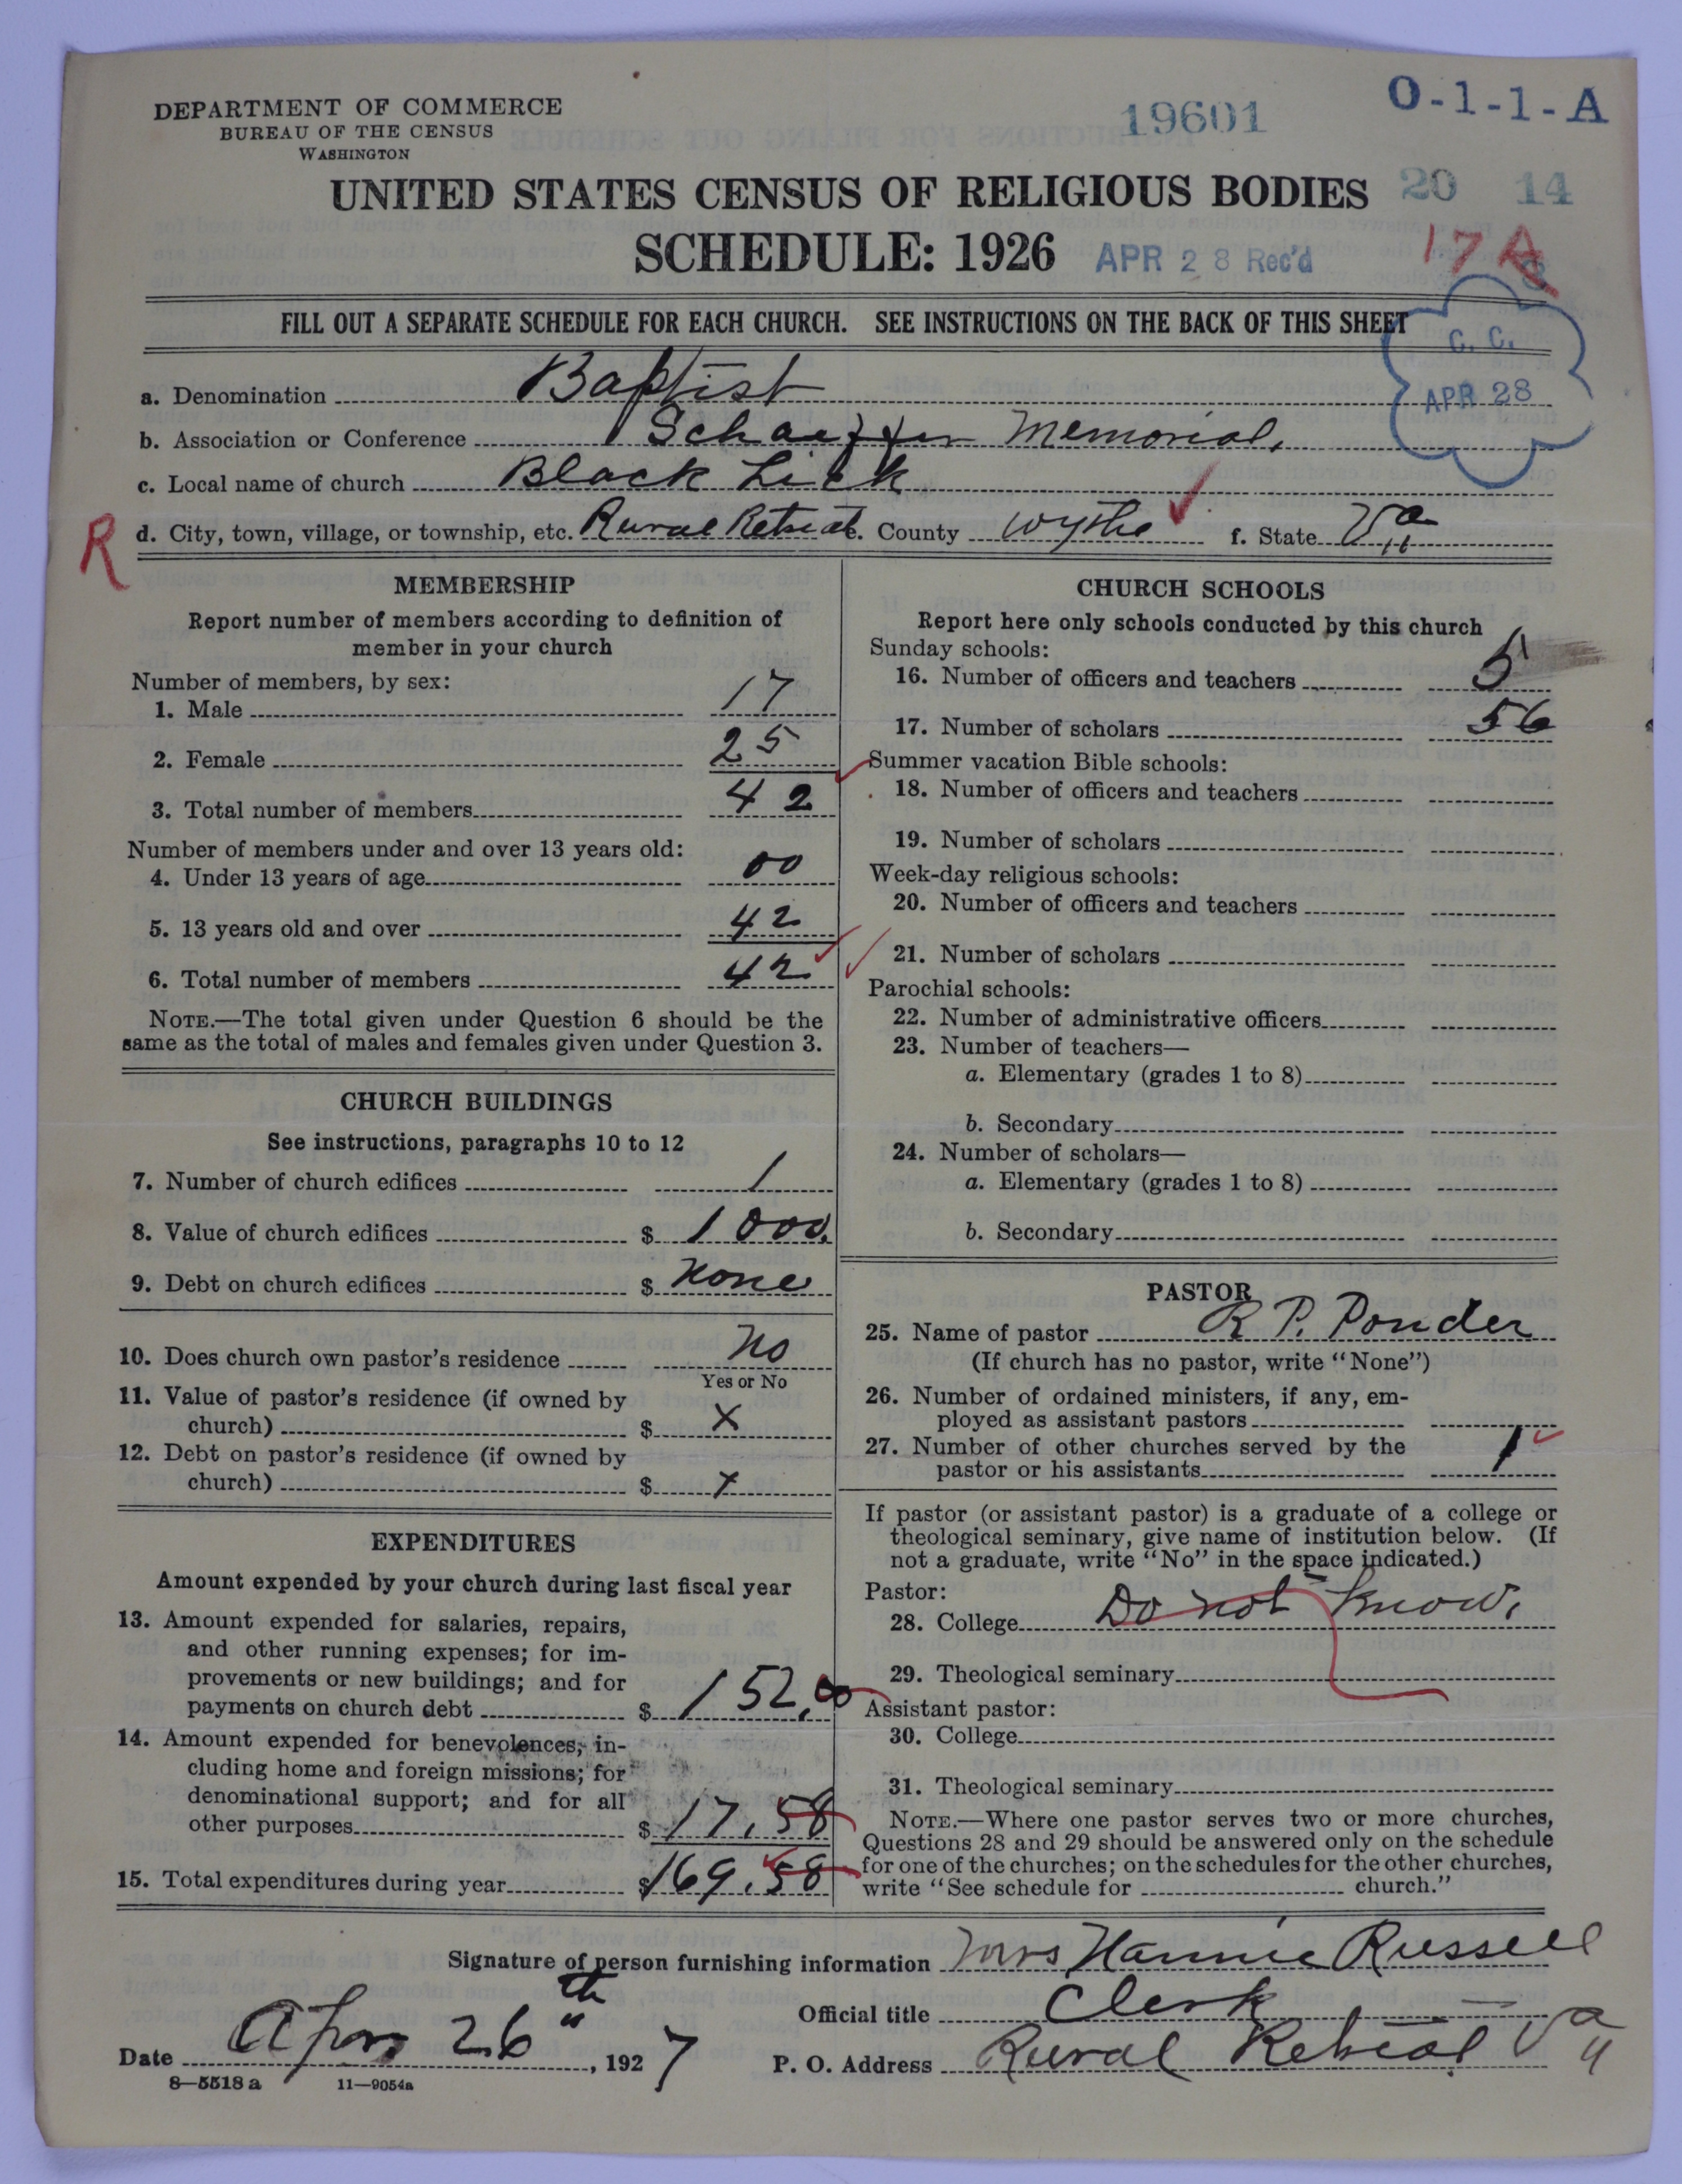 DEPARTMENT OF COMMERCE
BUREAU OF THE CENSUS
WASHINGTON
19601
O-1-1-A
UNITED STATES CENSUS OF RELIGIOUS BODIES
20 14
SCHEDULE: 1926
APR 28 Rec'd
17 A
FILL OUT A SEPARATE SCHEDULE FOR EACH CHURCH. SEE INSTRUCTIONS ON THE BACK OF THIS SHEET
C. C.
APR 28
a. Denomination Baptist
b. Association or Conference Schaeffer Memorial,
c. Local name of church Black Lick
R
d. City, town, village, or township, etc. Rural Retreat e. County Wythe f. State Va
MEMBERSHIP
Report number of members according to definition of
member in your church
Number of members, by sex:
1. Male 17
2. Female 25
3. Total number of members 42
Number of members under and over 13 years old:
4. Under 13 years of age 00
5. 13 years old and over 42
6. Total number of members 42
NOTE.—The total given under Question 6 should be the
same as the total of males and females given under Question 3.
CHURCH BUILDINGS
See instructions, paragraphs 10 to 12
7. Number of church edifices 1
8. Value of church edifices $ 1000.
9. Debt on church edifices $ None
10. Does church own pastor's residence No
Yes or No
11. Value of pastor's residence (if owned by
church) $ X
12. Debt on pastor's residence (if owned by
church) $ X
EXPENDITURES
Amount expended by your church during last fiscal year
13. Amount expended for salaries, repairs,
and other running expenses; for im-
provements or new buildings; and for
payments on church debt $ 152.00
14. Amount expended for benevolences, in-
cluding home and foreign missions; for
denominational support; and for all
other purposes $ 17.58
15. Total expenditures during year $169.58
CHURCH SCHOOLS
Report here only schools conducted by this church
Sunday schools:
16. Number of officers and teachers 5
17. Number of scholars 56
Summer vacation Bible schools:
18. Number of officers and teachers
19. Number of scholars
Week-day religious schools:
20. Number of officers and teachers
21. Number of scholars
Parochial schools:
22. Number of administrative officers
23. Number of teachers—
a. Elementary (grades 1 to 8)
b. Secondary
24. Number of scholars—
a. Elementary (grades 1 to 8)
b. Secondary
PASTOR
25. Name of pastor R P. Ponder
(If church has no pastor, write "None")
26. Number of ordained ministers, if any, em-
ployed as assistant pastors
27. Number of other churches served by the
pastor or his assistants 1
If pastor (or assistant pastor) is a graduate of a college or
theological seminary, give name of institution below. (If
not a graduate, write "No" in the space indicated.)
Pastor:
28. College Do not know.
29. Theological seminary
Assistant pastor:
30. College
31. Theological seminary
NOTE.—Where one pastor serves two or more churches,
Questions 28 and 29 should be answered only on the schedule
for one of the churches; on the schedules for the other churches,
write "See schedule for church."
Signature of person furnishing information Mrs Nannie Russell
Official title Clerk
Date Apr 26th, 1927
P. O. Address Rural Retreat Va
8—5518 a 11—9054a